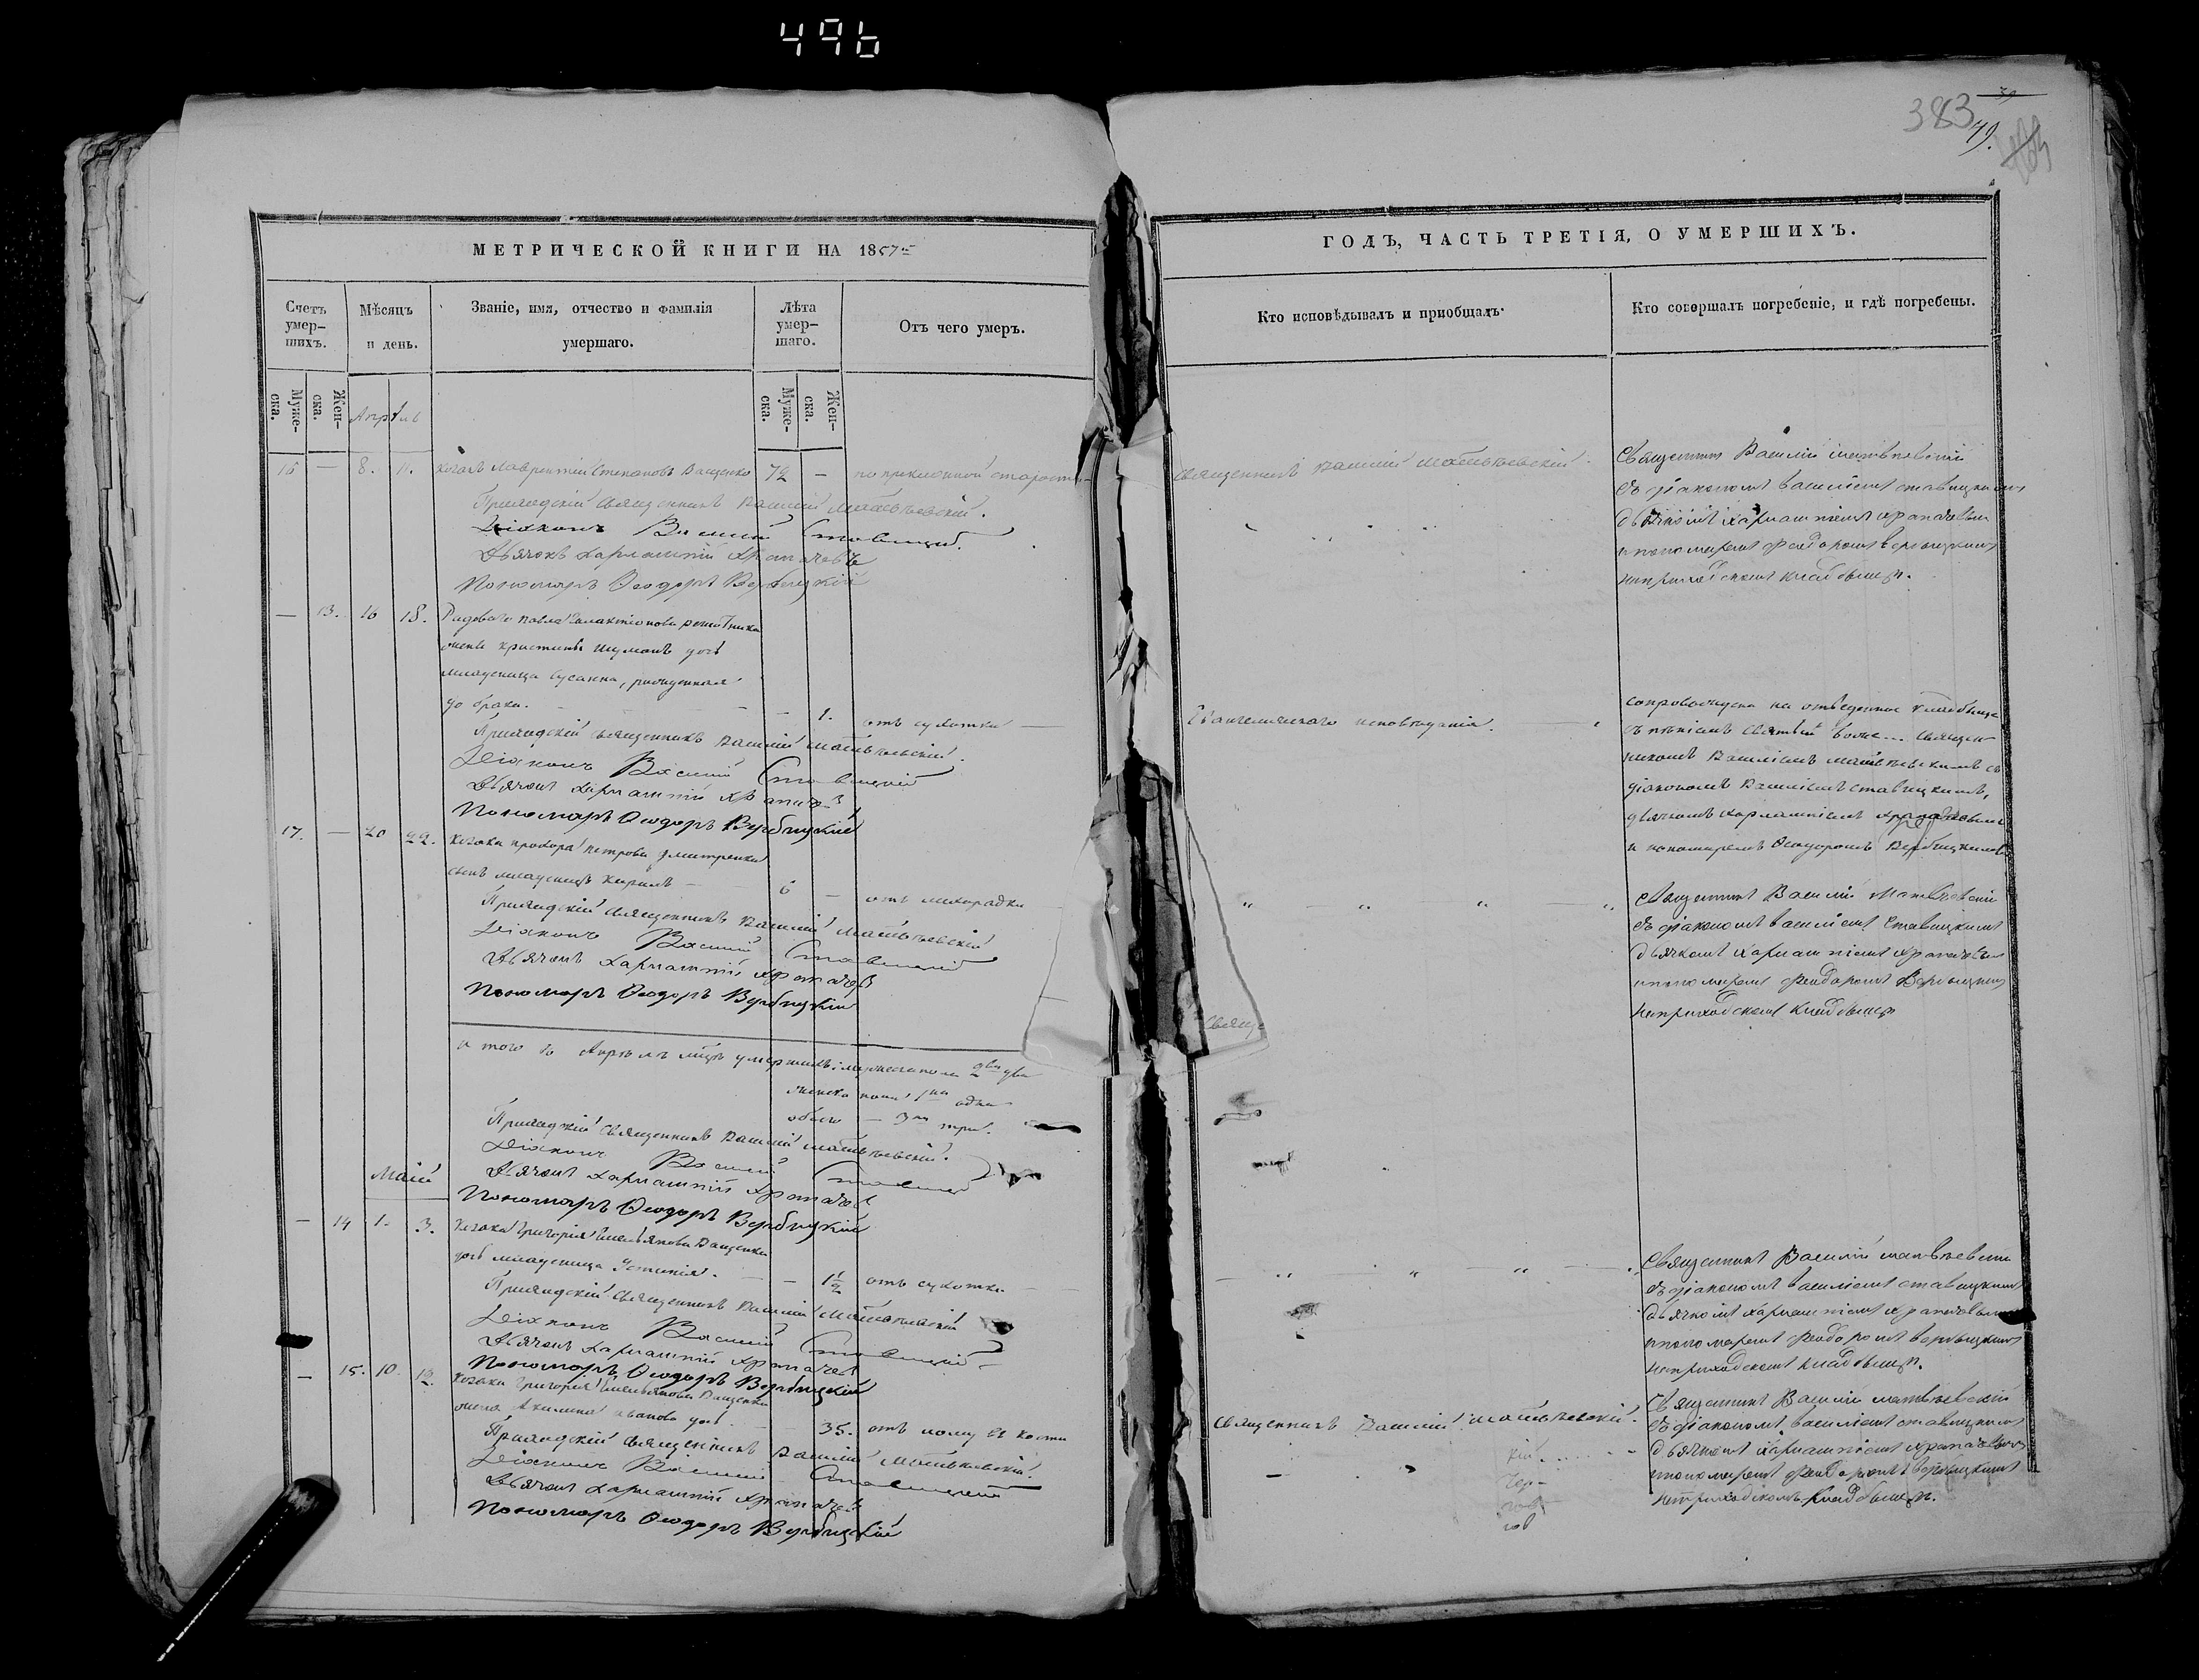 496
383
39
49.
МЕТРИЧЕСКОЙ КНИГИ НА 1857
Счетъ умер-шихъ.
Мѣсяцъ и день.
Званіе, имя, отчество и фамилія умершаго.
Лѣта умер-шаго.
Отъ чего умеръ.
Муже-ска.
Жен-ска.
Апрѣль
Муже-ска.
Жен-ска.
— 8. 11. козакъ Лаврентій Степановъ Ващенко 72 — по преклонной старости
Приходскій Священникъ Василій Матвѣевскій.
Діаконъ Василій Ставицкій.
Дьячокъ Харлампій
Пономарь Ѳеодоръ Вербицкій
— 13. 16 18. Рядоваго Павла Галактіонова
жены Христины дочь
младеница Сусанна, рожденная
до брака. — — — 1. отъ сухотки —
Приходскій Священникъ Василій Матвѣевскій.
Діаконъ Василій Ставицкій
Дьячокъ Харлампій
Пономарь Ѳеодоръ Вербицкій
17. — 20 22. козака Прохора Петрова Дмитренка
сынъ младенецъ Кирилъ — 6 — отъ лихорадки
Приходскій Священникъ Василій Матвѣевскій
Діаконъ Василій Ставицкій
Дьячокъ Харлампій
Пономарь Ѳеодоръ Вербицкій
Итого въ Апрѣлѣ мцѣ умершихъ: мужеска пола два
женска пола одна
обоего — 3 три.
Приходскій Священникъ Василій Матвѣевскій.
Діаконъ Василій Ставицкій
Дьячокъ Харлампій
Пономарь Ѳеодоръ Вербицкій
Маій
— 14 1. 3. козака Григорія Емельянова Ващенка
дочь младеница Устинія. — — 1½ отъ сухотки
Приходскій Священникъ Василій Матвѣевскій
Діаконъ Василій Ставицкій
Дьячокъ Харлампій
Пономарь Ѳеодоръ Вербицкій
— 15. 10. 12. козака Григорія Емельянова Ващенка
жена Акилина Иванова дочь — 35. отъ лому въ кости
Приходскій Священникъ Василій Матвѣевскій.
Діаконъ Василій Ставицкій
Дьячокъ Харлампій
Пономарь Ѳеодоръ Вербицкій
ГОДЪ, ЧАСТЬ ТРЕТІЯ, О УМЕРШИХЪ.
Кто исповѣдывалъ и пріобщалъ.
Кто совершалъ погребеніе, и гдѣ погребены.
Священникъ Василій Матвѣевскій.
Священникъ Василій Матвѣевскій
съ діакономъ Василіемъ Ставицкимъ
дьячкомъ Харлампіемъ
и пономаремъ Феодоромъ Вербицкимъ
на приходскомъ кладбищѣ.
Евангелическаго исповѣданія.
сопровождена на отведенное кладбище
съ пѣніемъ Святый Боже... Священ-
никомъ Василіемъ Матвѣевскимъ съ
діакономъ Василіемъ Ставицкимъ,
дьячкомъ Харлампіемъ
и пономаремъ Ѳеодоромъ Вербицкимъ
Священникъ Василій Матвѣевскій
съ діакономъ Василіемъ Ставицкимъ
дьячкомъ Харлампіемъ
и пономаремъ Феодоромъ Вербицкимъ
на приходскомъ кладбищѣ
Свящ
Священникъ Василій Матвѣевскій
съ діакономъ Василіемъ Ставицкимъ
дьячкомъ Харлампіемъ
и пономаремъ Феодоромъ Вербицкимъ
на приходскомъ кладбищѣ.
Священникъ Василій Матвѣевскій.
Священникъ Василій Матвѣевскій
съ діакономъ Василіемъ Ставицкимъ
дьячкомъ Харлампіемъ
и пономаремъ Феодоромъ Вербицкимъ
на приходскомъ кладбищѣ.